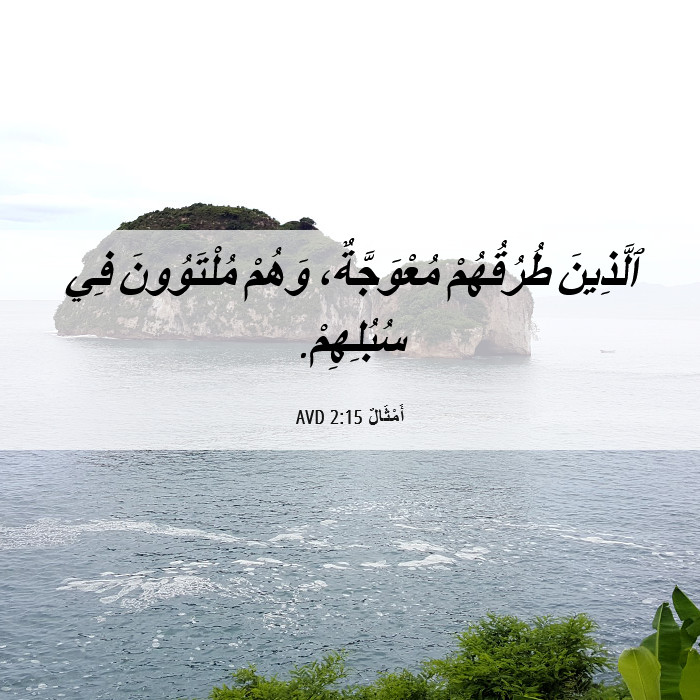 ٱلَّذِينَ طُرُقُهُمْ مُعْوَجَّةٌ، وَهُمْ مُلْتَوُونَ فِي
سُبُلِهِمْ.
أَمْثَالٌ 2:15 AVD